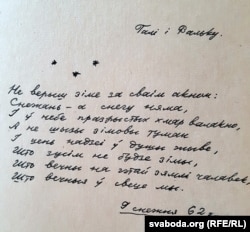 Галі і Фальку.
* * *
Не верыш зіме за сваім акном:
Снежань – а снегу няма,
І ў небе празрыстых хмар валакно,
А не шызы зімовы туман
І цень надзеі ў душы жыве,
Што зусім не будзе зімы,
Што вечны на гэтай зямлі чалавек,
Што вечныя ў свеце мы.
9 снежня 62 г.
svaboda.org (RFE/RL)